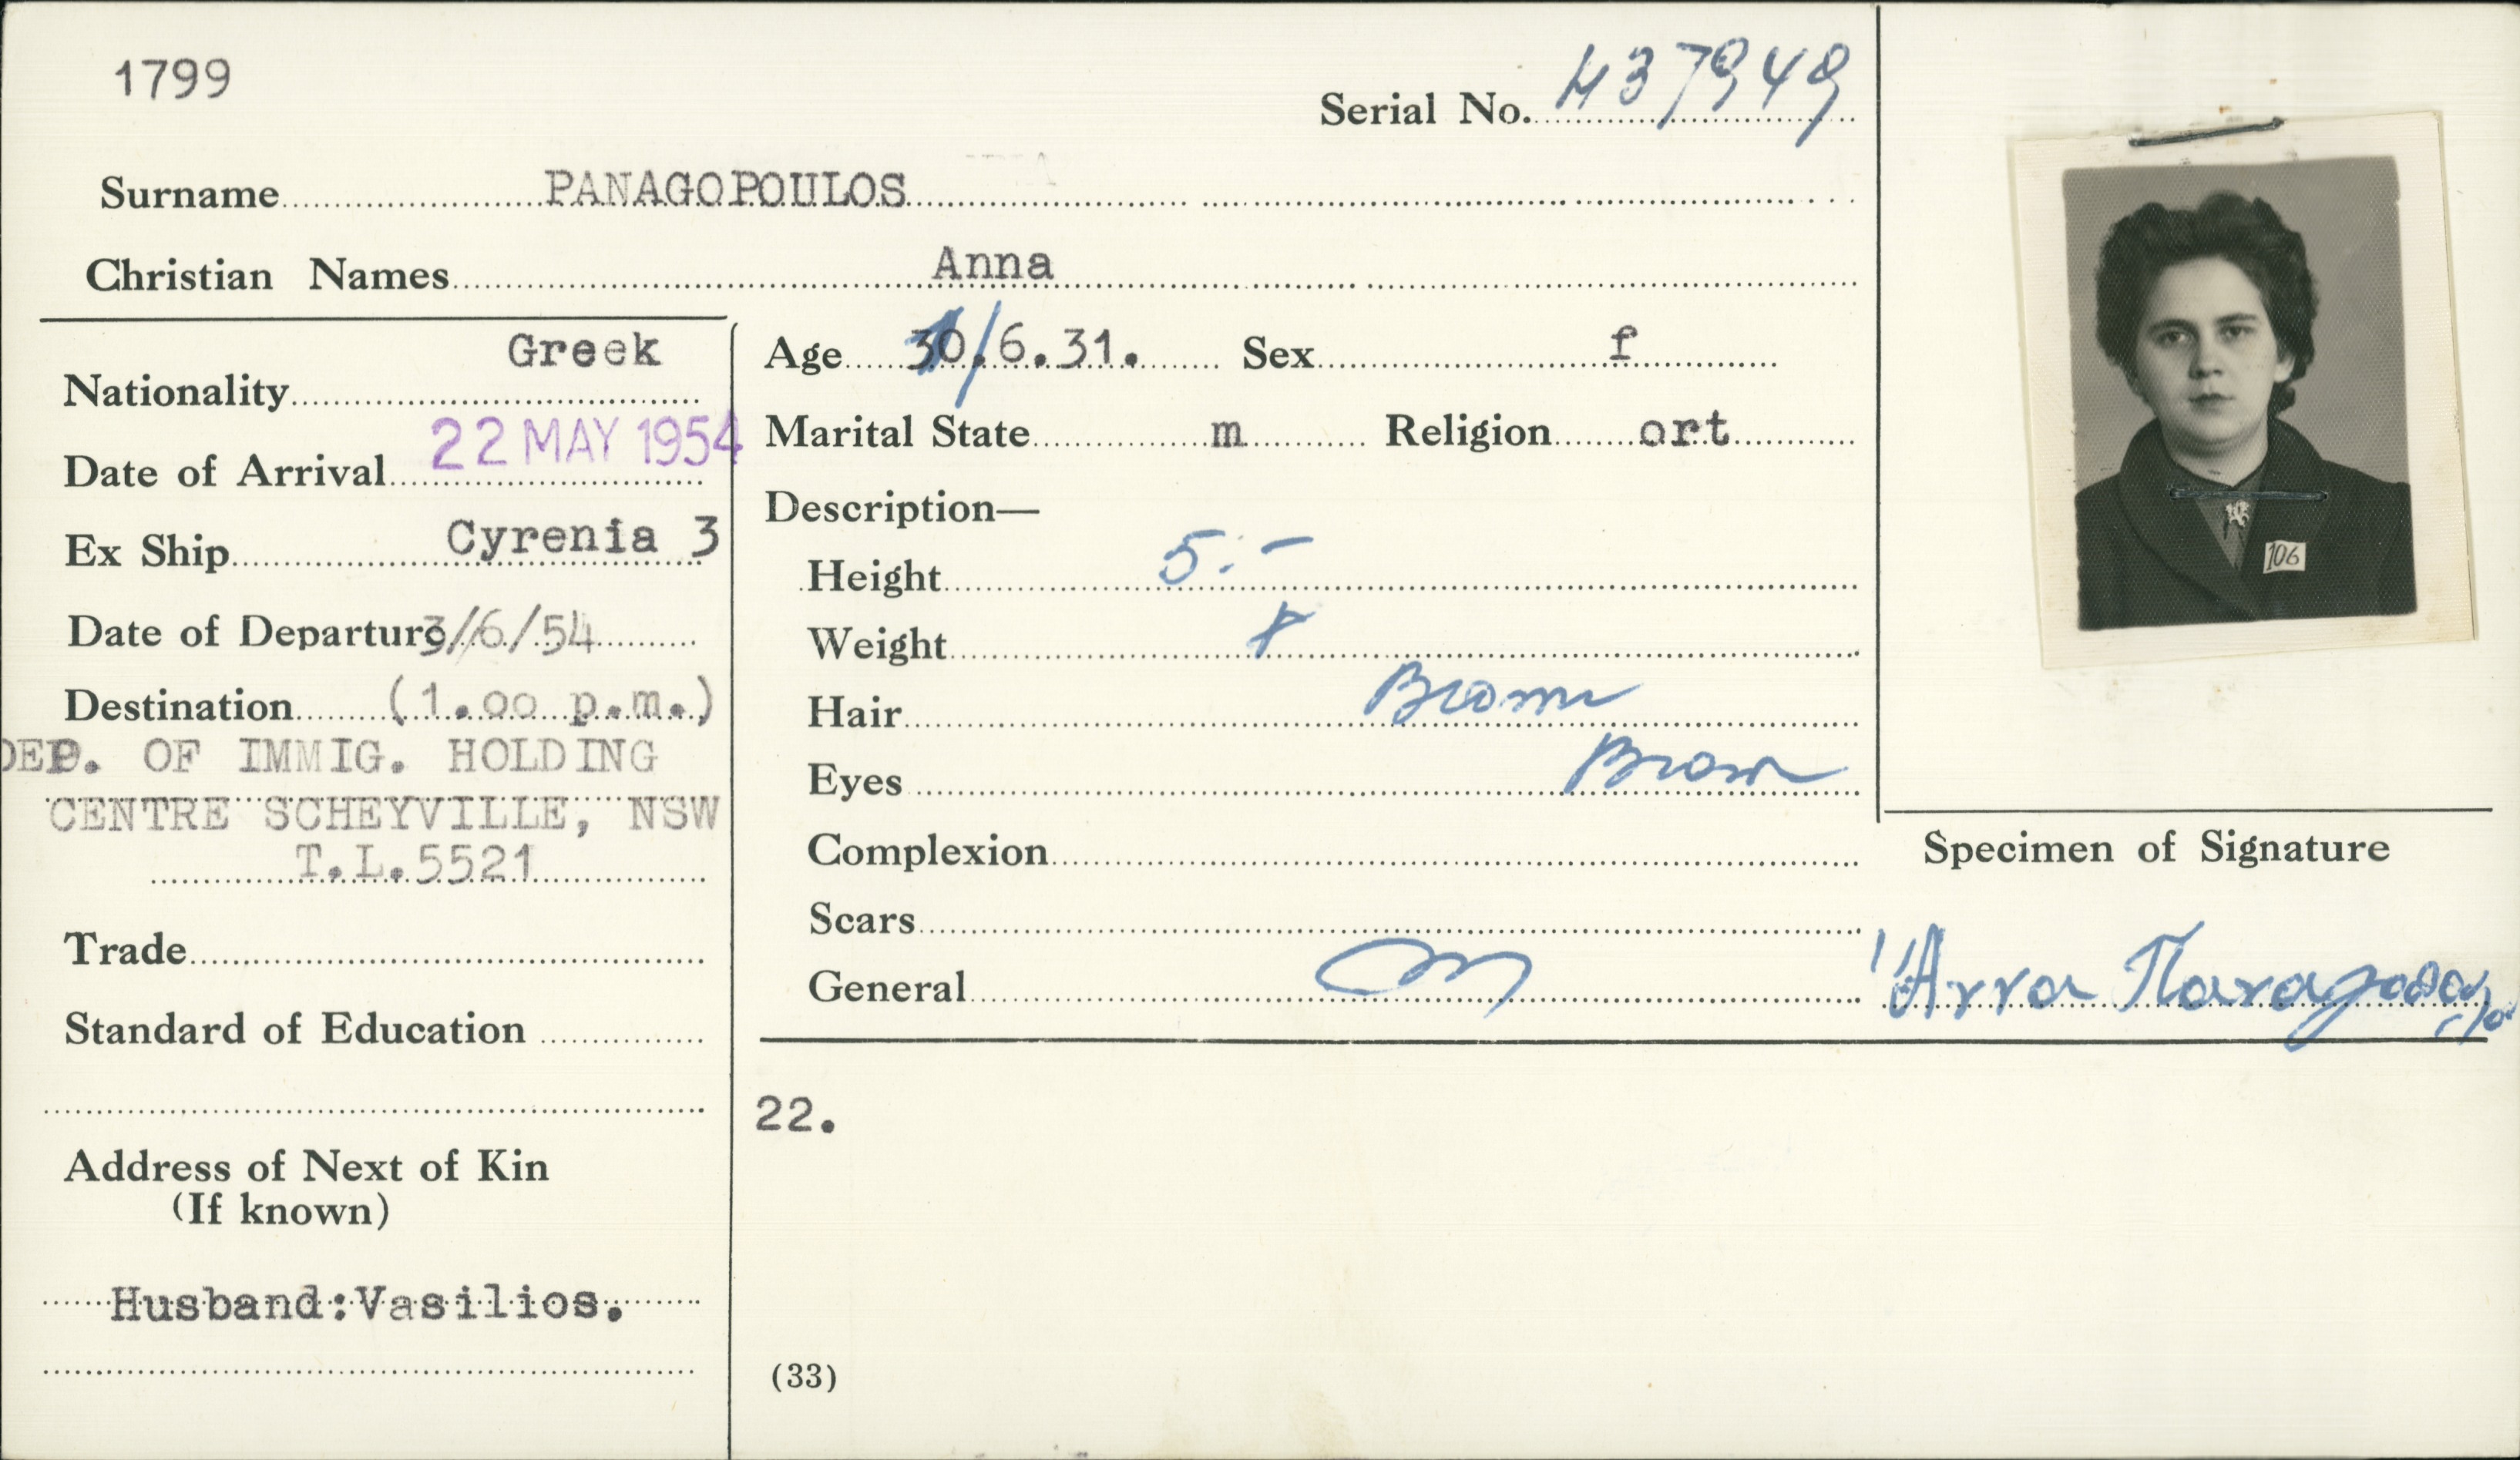 1799
Serial No. 437949
Surname PANAGOPOULOS
Christian Names Anna
Nationality Greek
Date of Arrival 22 MAY 1954
Ex Ship Cyrenia 3
Date of Departure 3/6/54
Destination (1.oo p.m.)
DEP. OF IMMIG. HOLDING
CENTRE SCHEYVILLE, NSW
T.L.5521
Trade
Standard of Education
Address of Next of Kin
(If known)
Husband:Vasilios.
Age 1/6.31. Sex f
Marital State m Religion ort
Description—
Height 5.-
Weight
Hair Brown
Eyes Brown
Complexion
Scars
General
22.
(33)
106
Specimen of Signature
Άννα